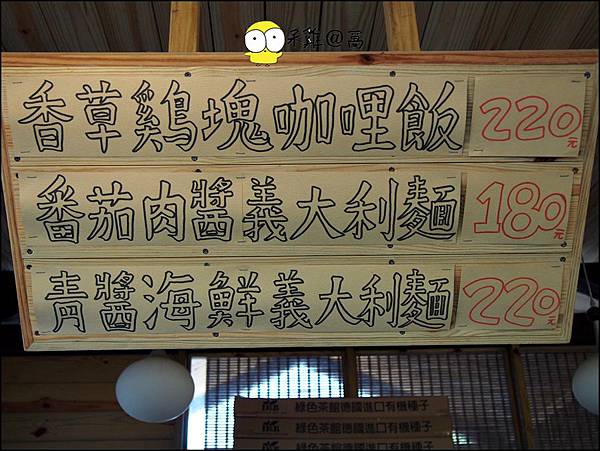 呆雞@窩
香草雞塊咖哩飯 220元
番茄肉醬義大利麵 180元
青醬海鮮義大利麵 220元
綠色茶館德國進口有機種子
綠色茶館德國進口有機種子
綠色茶館德國進口有機種子